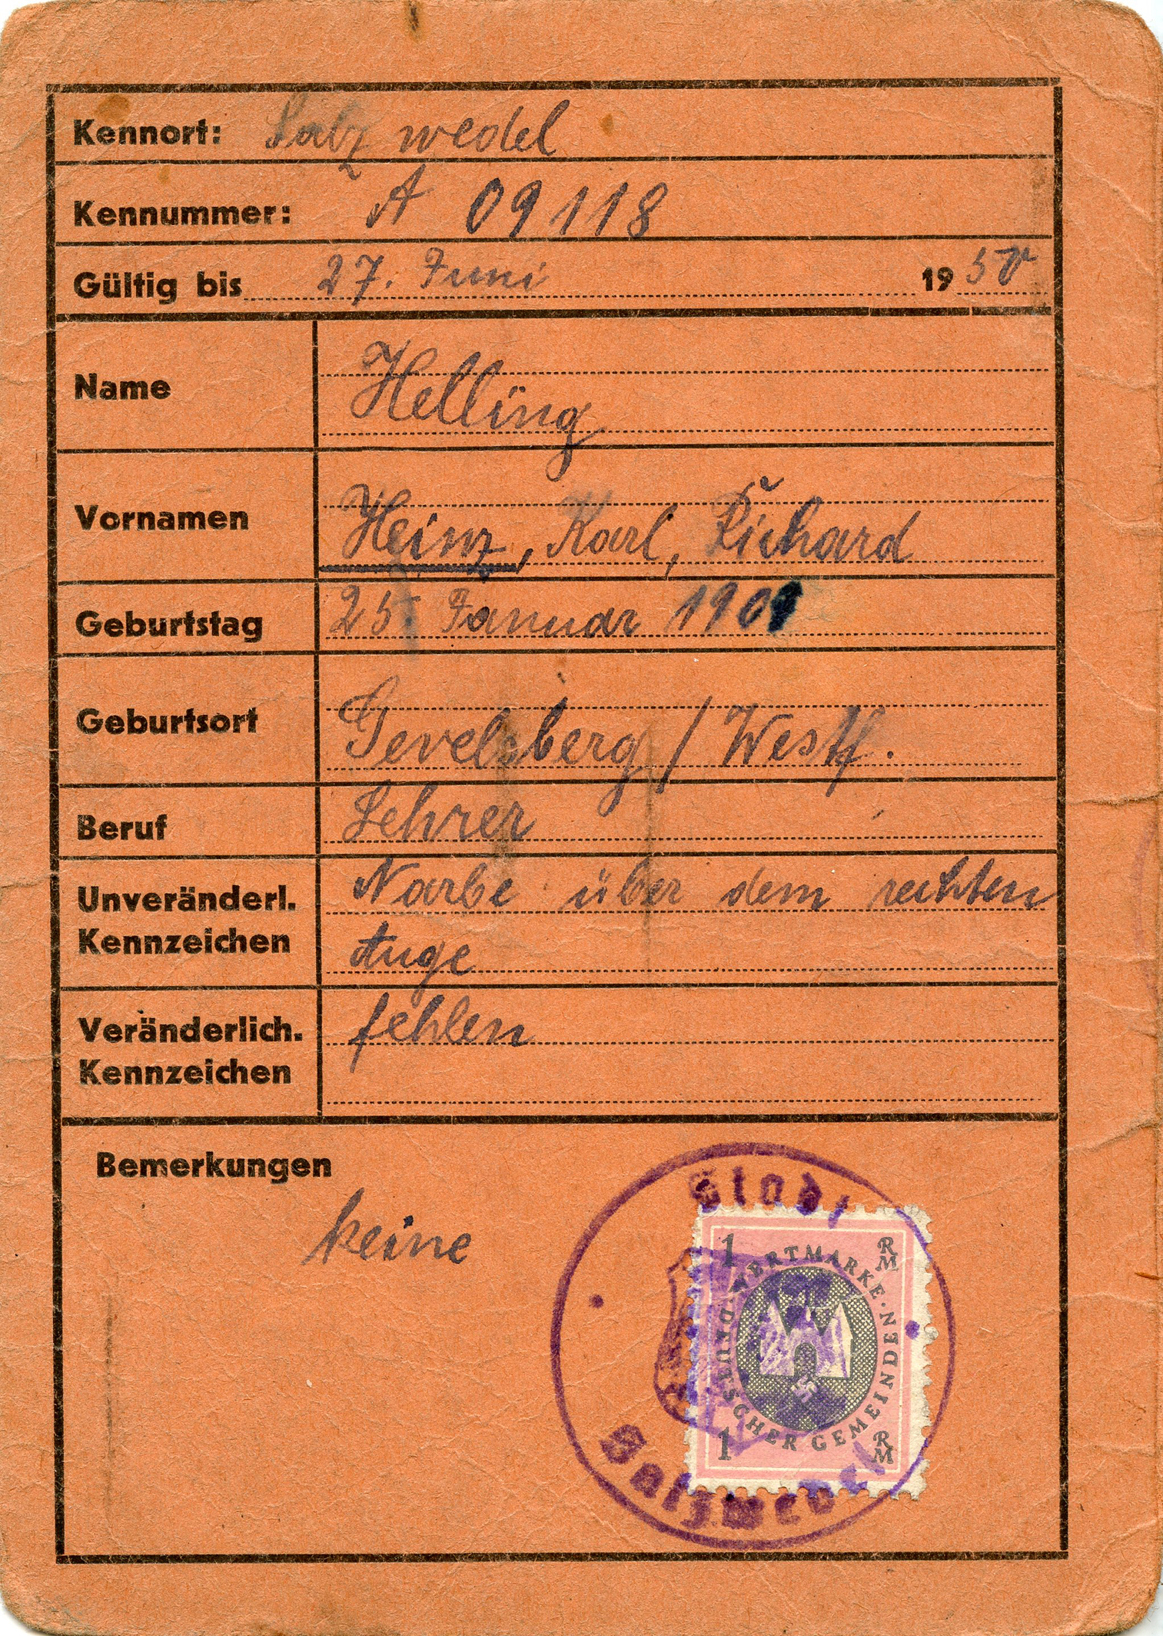 Kennort: Salzwedel
Kennummer: A 09118
Gültig bis 27. Juni 1950
Name Helling
Vornamen Heinz, Karl, Richard
Geburtstag 25. Januar 1901
Geburtsort Gevelsberg / Westf.
Beruf Lehrer
Unveränderl. Kennzeichen Narbe über dem rechten
Auge
Veränderlich. Kennzeichen fehlen
Bemerkungen
keine
Stadt
1 RM
WERTMARKE · DEUTSCHER GEMEINDEN
1 RM
Salzwedel